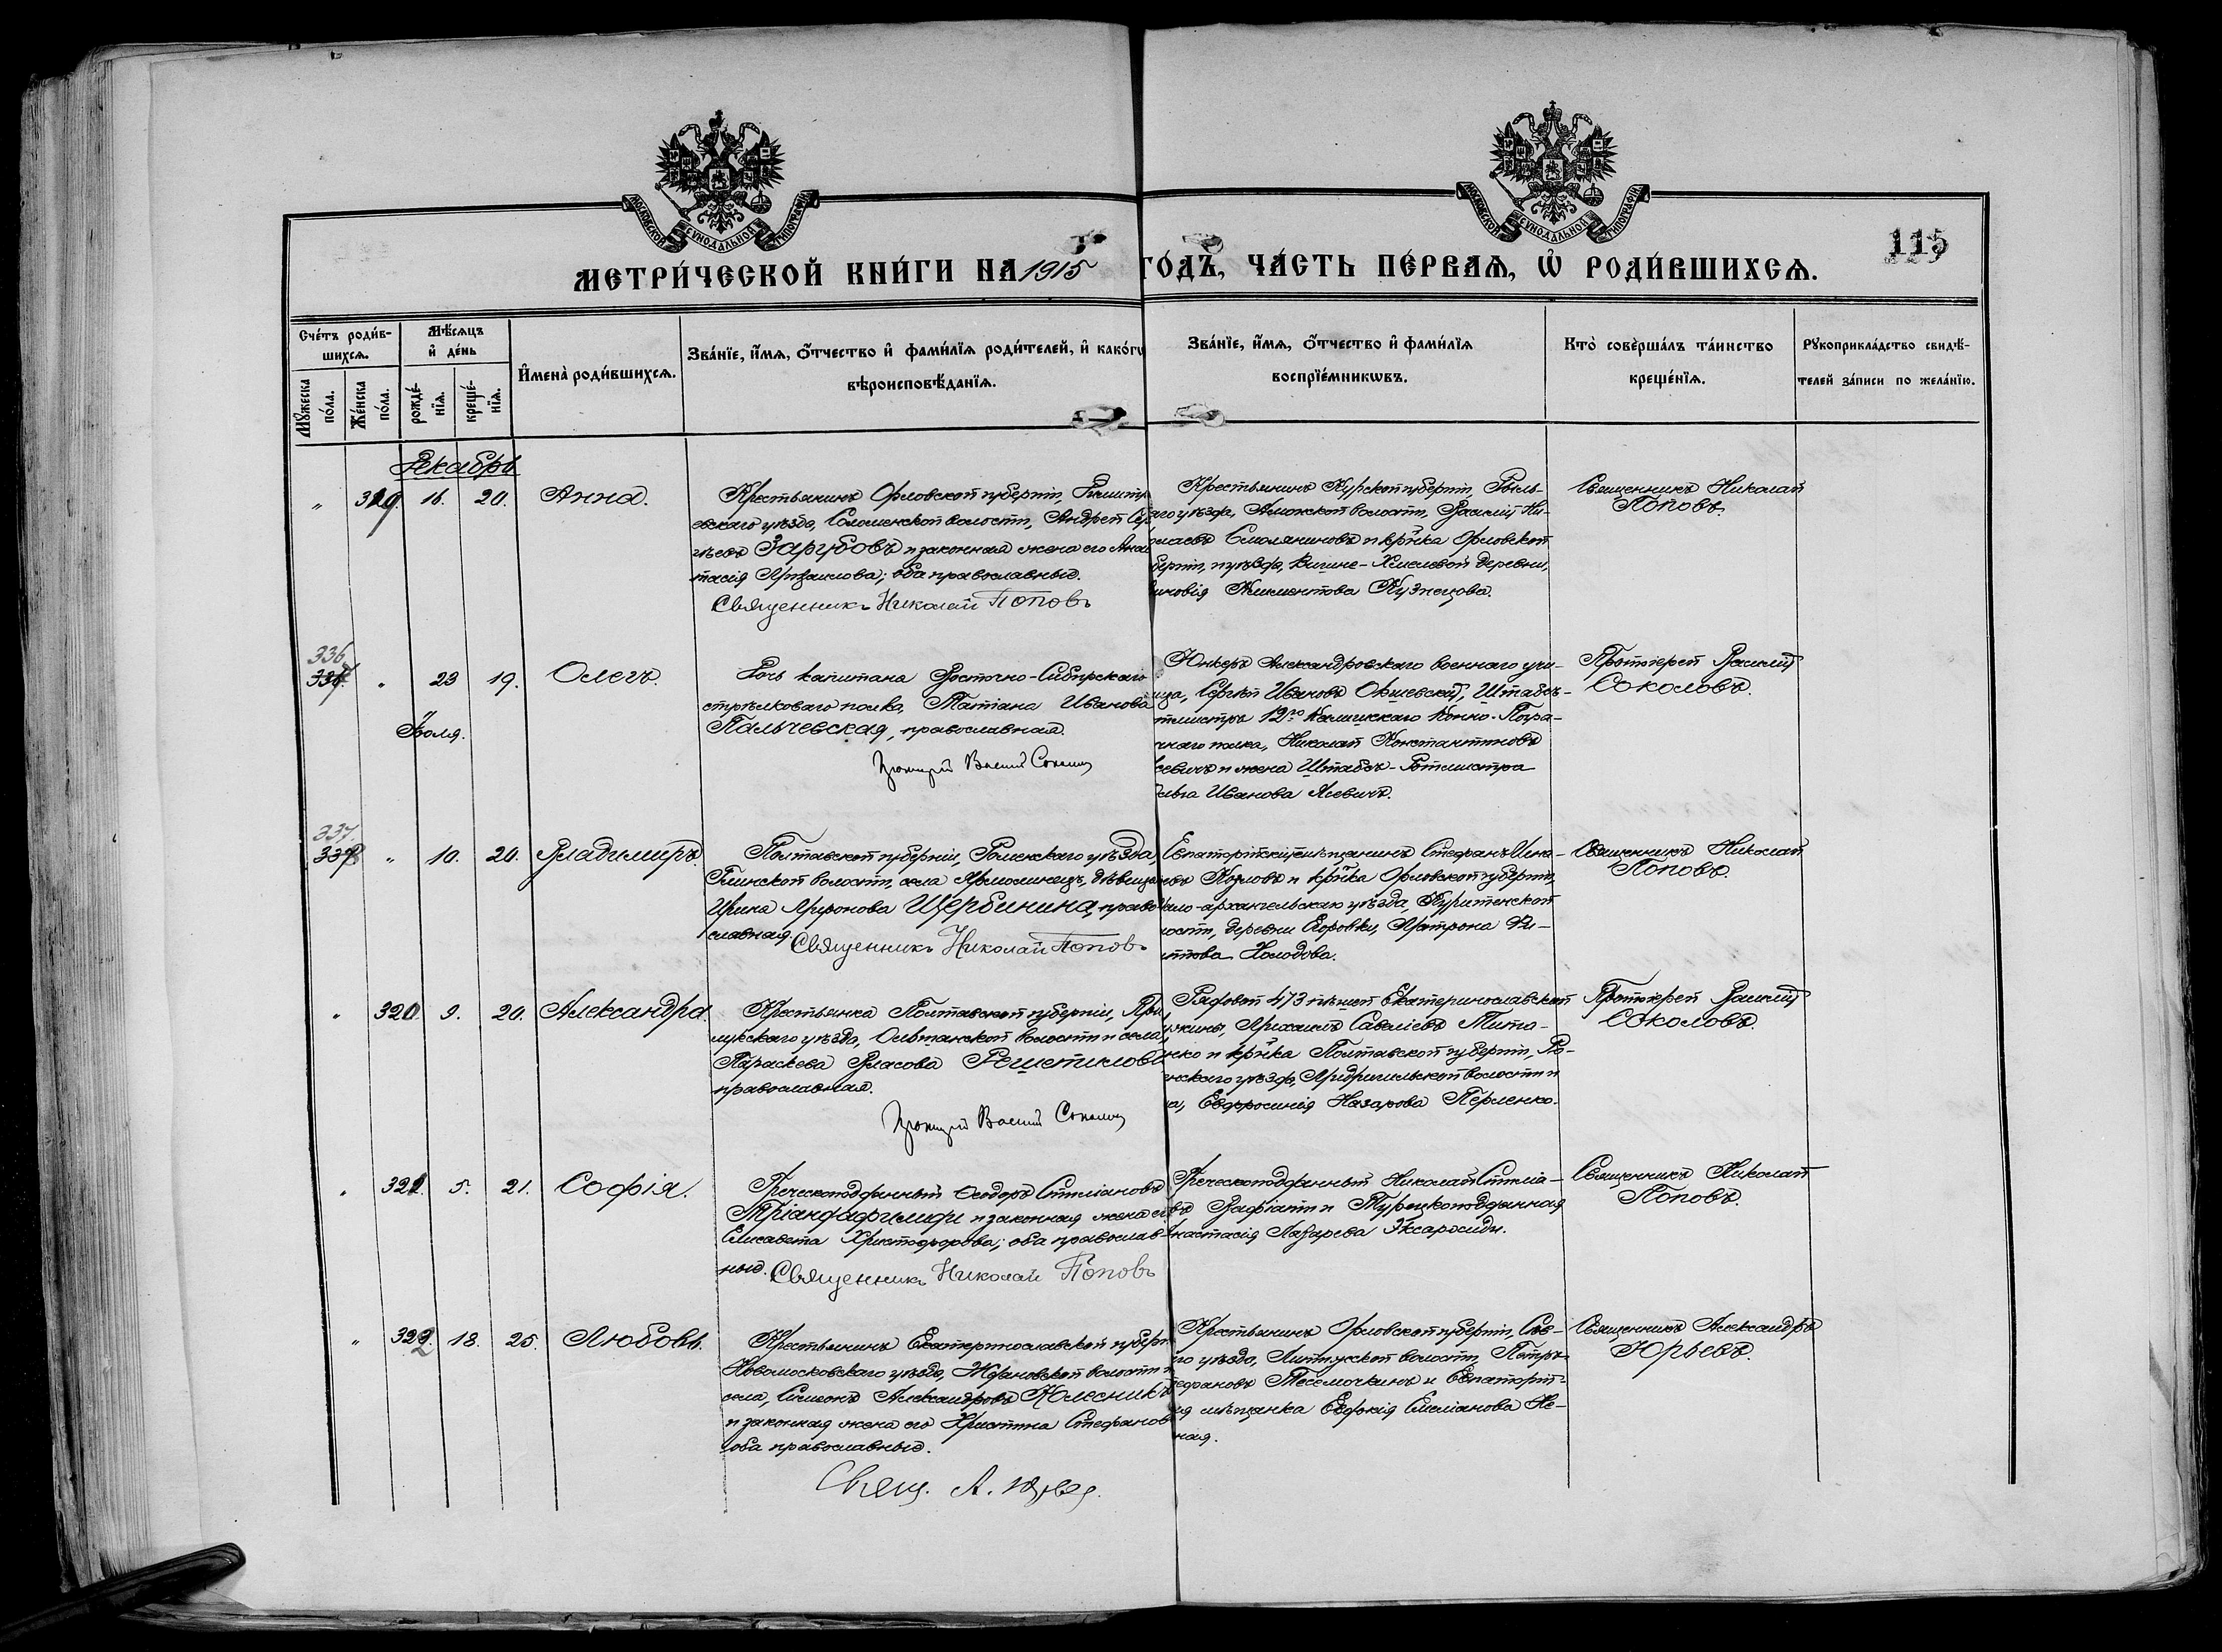 МОСКОВСКОЙ СѴНОДАЛЬНОЙ ТИПОГРАФІИ
МОСКОВСКОЙ СѴНОДАЛЬНОЙ ТИПОГРАФІИ
115
МЕТРИ́ЧЕСКОЙ КНИ́ГИ НА 1915 ГО́ДЪ, ЧА́СТЬ ПЕ́РВАѦ, Ѡ҆ РОДИ́ВШИХСѦ.
Сче́тъ роди́в-
шихсѧ.
Мꙋ́жеска
по́ла.
Же́нска
по́ла.
Мѣ́сѧцъ
и҆ де́нь
рожде́-
нїѧ.
креще́-
нїѧ.
И҆мена̀ роди́вшихсѧ.
Зва́нїе, и҆́мѧ, ѻ҆́тчество и҆ фамѝлїѧ роди́телей, и҆ како́гѡ
вѣроисповѣ́данїѧ.
Зва́нїе, и҆́мѧ, ѻ҆́тчество и҆ фамѝлїѧ
воспрїе́мникѡвъ.
Кто̀ соверша́лъ та́инство
креще́нїѧ.
Рꙋкоприкла́дство свидѣ́-
телей за́писи по жела́нїю.
Декабрь
" 319. 16. 20. Анна.
Крестьянинъ Орловской губерніи, Дмитр
евскаго уѣзда, Соломенской волости, Андрей Сер
гѣевъ Зарубовъ и законная жена его Анас
тасія Михаилова; оба православные.
Священникъ Николай Поповъ
Крестьянинъ Курской губерніи, Рыль-
аго уѣзда, Амонской волости, Василій Ни-
олаевъ Смоляниновъ и кр-нка Орловской
берніи, и уѣзда, Хмелевой деревни,
Климентова Кузнецова.
Священникъ Николай
Поповъ.
336
" 23 19. Олегъ.
Іюля.
Дочь капитана Восточно-Сибирскаго
стрѣлковаго полка, Татіана Иванова
Пальчевская, православная.
Протоіерей Василій Соколовъ
Юнкеръ Александровскаго военнаго учи-
ища, Сергѣй Ивановъ Штабсъ-
тмистръ 12го Калишскаго Конно-Погра-
чнаго полка, Николай Константиновъ
севичъ и жена Штабсъ-Ротмистра
льга Иванова Ясевичъ.
Протоіерей Василій
Соколовъ.
337.
" 10. 20. Владимиръ.
Полтавской губерніи, Роменскаго уѣзда,
Глинской волости, села Ярмолинецъ, дѣвица
Ирина Миронова Щербинина, право
славная.
Священникъ Николай Поповъ
Евпаторійскій мѣщанинъ Стефанъ
въ Козловъ и кр-нка Орловской губерніи,
ало-архангельскаго уѣзда,
ости, деревни Егоровки, Матрона Фи-
иппова Холодова.
Священникъ Николай
Поповъ.
" 320 9. 20. Александра.
Крестьянка Полтавской губерніи, При
лукскаго уѣзда, Ольшанской волости и села,
Параскева Власова Решетилова
православная.
Протоіерей Василій Соколовъ
Рядовой 473 пѣшей Екатеринославской
ужины, Михаилъ Савеліевъ Тито-
нко и кр-нка Полтавской губерніи, Ро-
нскаго уѣзда, волости и
а, Евфросинія Назарова Перленко.
Протоіерей Василій
Соколовъ.
" 321. 5. 21. Софія.
Греческоподданный Ѳеодоръ Стиліановъ
Тріандафилиди и законная жена ег
Елисавета Христофорова; оба православ-
ные. Священникъ Николай Поповъ
Греческоподданный Николай Стилiа-
въ и Турецкоподданная
настасія Лазарева
Священникъ Николай
Поповъ.
" 322. 18. 25. Любовь.
Крестьянинъ Екатеринославской губерн
Новомосковскаго уѣзда, Ждановской волости и
села, Симеонъ Александровъ Колесникъ
и законная жена его Христина Стефанов
оба православные.
Свящ. А. Юрьевъ.
Крестьянинъ Орловской губерніи, Сѣв-
го уѣзда, волости, Петръ
ефановъ Тесемочкинъ и Евпаторій-
ая мѣщанка Евдокія Емеліанова Не-
ная.
Священникъ Александръ
Юрьевъ.